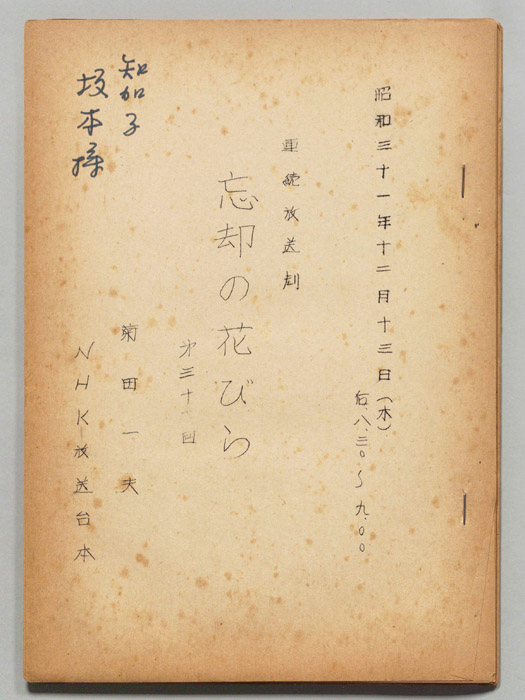 昭和三十一年十二月十三日(木)
后.八.三〇~九.〇〇
連続放送劇
忘却の花びら
第三十一回
菊田一夫
NHK放送台本
知加子
坂本様